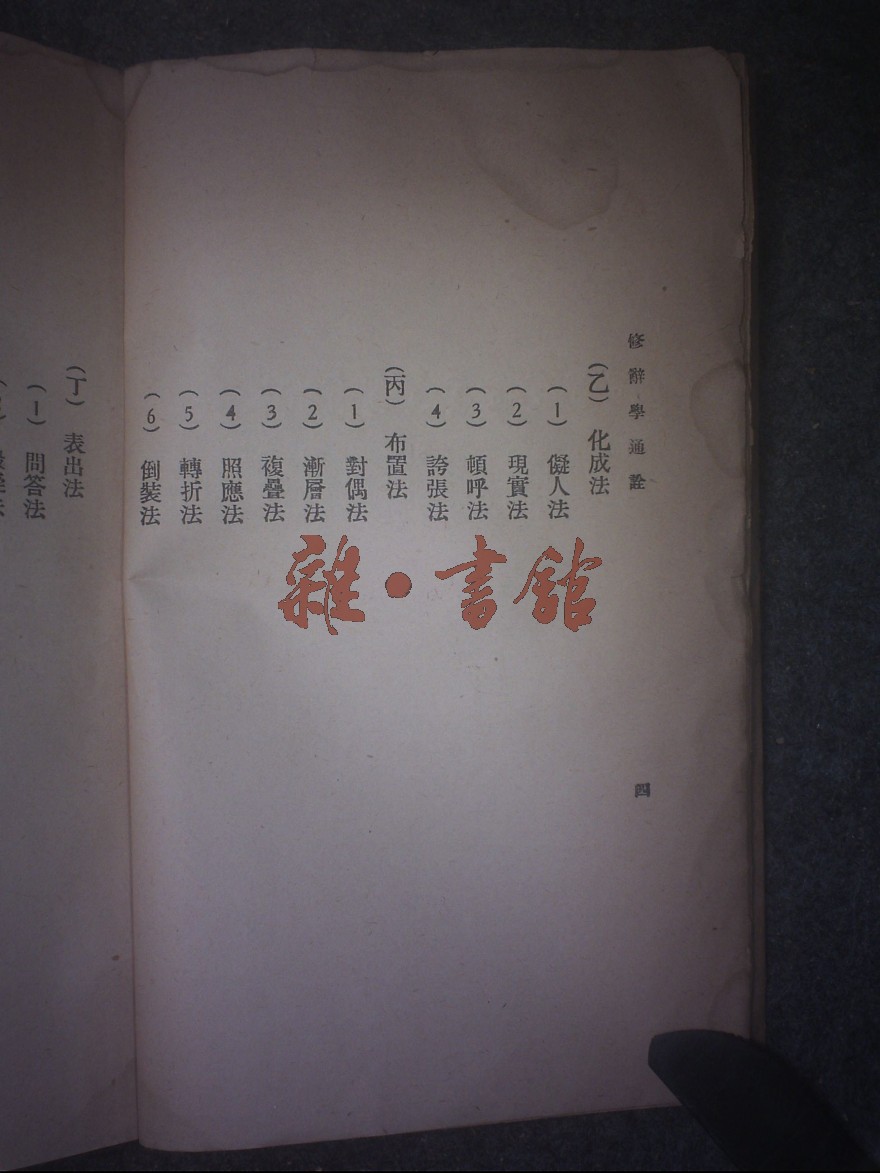 修辭學通詮
(乙) 化成法
(1) 儗人法
(2) 現實法
(3) 頓呼法
(4) 誇張法
(丙) 布置法
(1) 對偶法
(2) 漸層法
(3) 複疊法
(4) 照應法
(5) 轉折法
(6) 倒裝法
四
(丁) 表出法
(1) 問答法
雜·書館